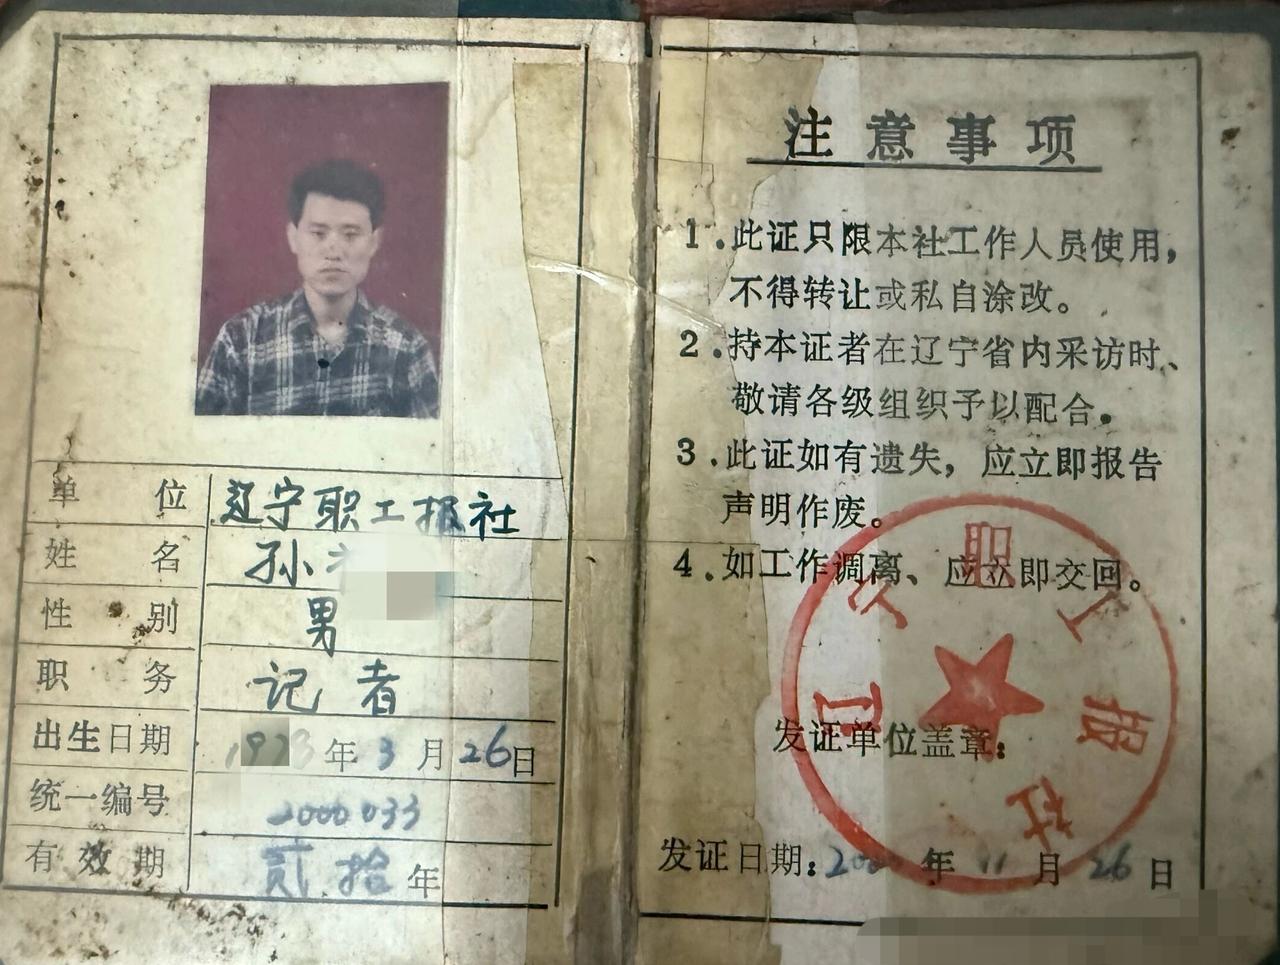 单位 辽宁职工报社
姓名 孙
性别 男
职务 记者
出生日期 年3月26日
统一编号 2000033
有效期 贰拾年
注意事项
1.此证只限本社工作人员使用,
不得转让或私自涂改。
2.持本证者在辽宁省内采访时、
敬请各级组织予以配合。
3.此证如有遗失,应立即报告
声明作废。
4.如工作调离、应立即交回。
辽宁职工报社
发证单位盖章:
发证日期: 年11月26日